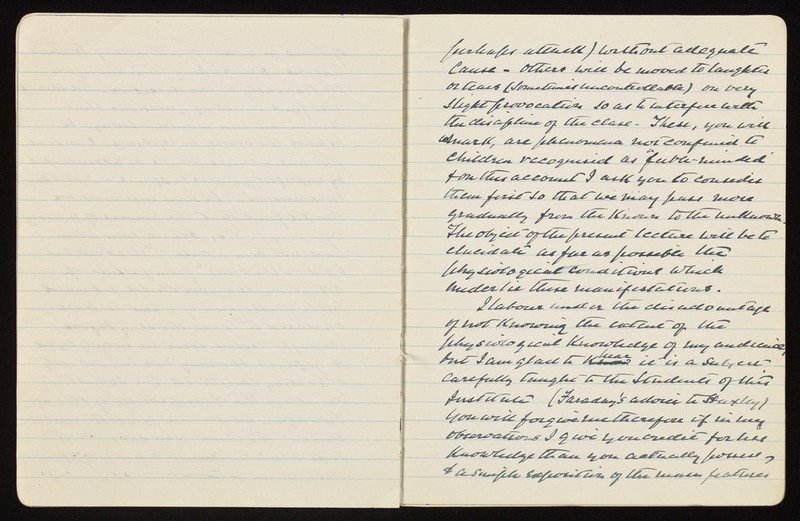 perhaps attack) without adequate
cause - others will be moved to laughter
or tears (sometimes uncontrollable) on very
slight provocation so as to interfere with
the discipline of the class - These, you will
remark, are phenomena not confined to
children recognised as "feeble-minded"
& on this account I ask you to consider
them first so that we may pass more
gradually from the known to the unknown.
The object of the present lecture will be to
elucidate as far as possible the
physiological conditions which
underlie these manifestations.
I labour under the disadvantage
of not knowing the extent of the
physiological knowledge of my audience,
but I am glad to hear it is a subject
carefully taught to the Students of this
Institute (Faraday's advice to Huxley)
You will forgive me therefore if in my
observations I give you credit for less
knowledge than you actually possess,
& a simple exposition of the main features